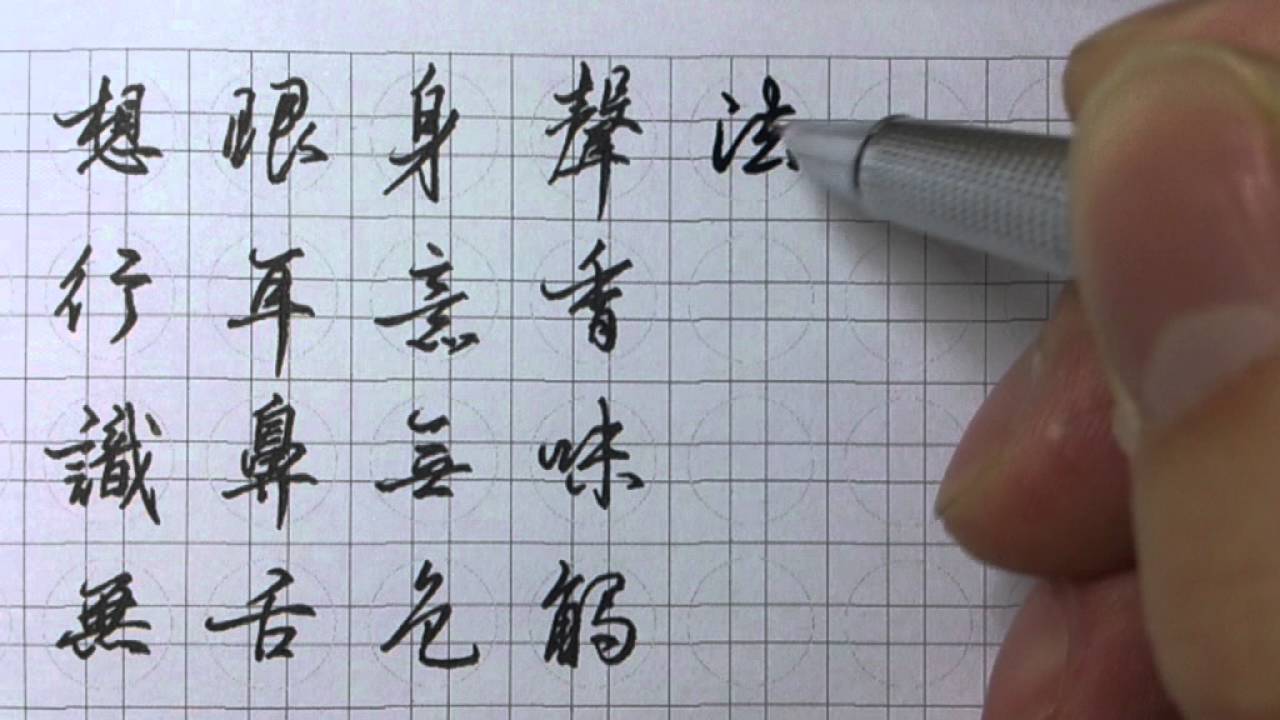 想行識無
眼耳鼻舌
身意無色
聲香味觸
法